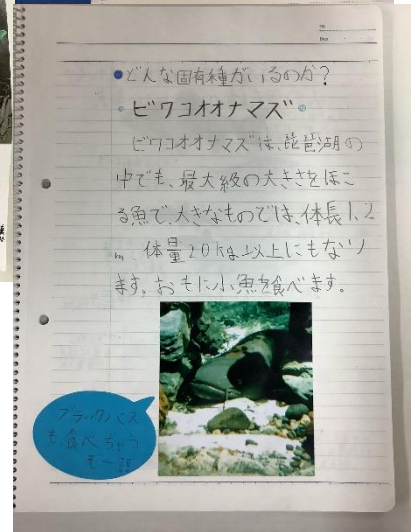 No.
Date
どんな固有種がいるのか?
ビワコオオナマズ
ビワコオオナマズは、琵琶湖の
中でも、最大級の大きさをほこ
る魚で、大きなものでは、体長1,2
m 体量20kg以上にもなり
ます。おもに小魚を食べます。
ブラックバス
も、食べちゃう
ぞー